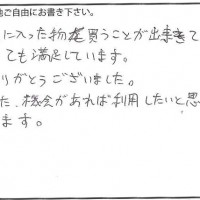 他ご自由にお書き下さい。
に入った物を買うことが出来て
ても満足しています。
りがとうございました。
た、機会があれば利用したいと思
ます。